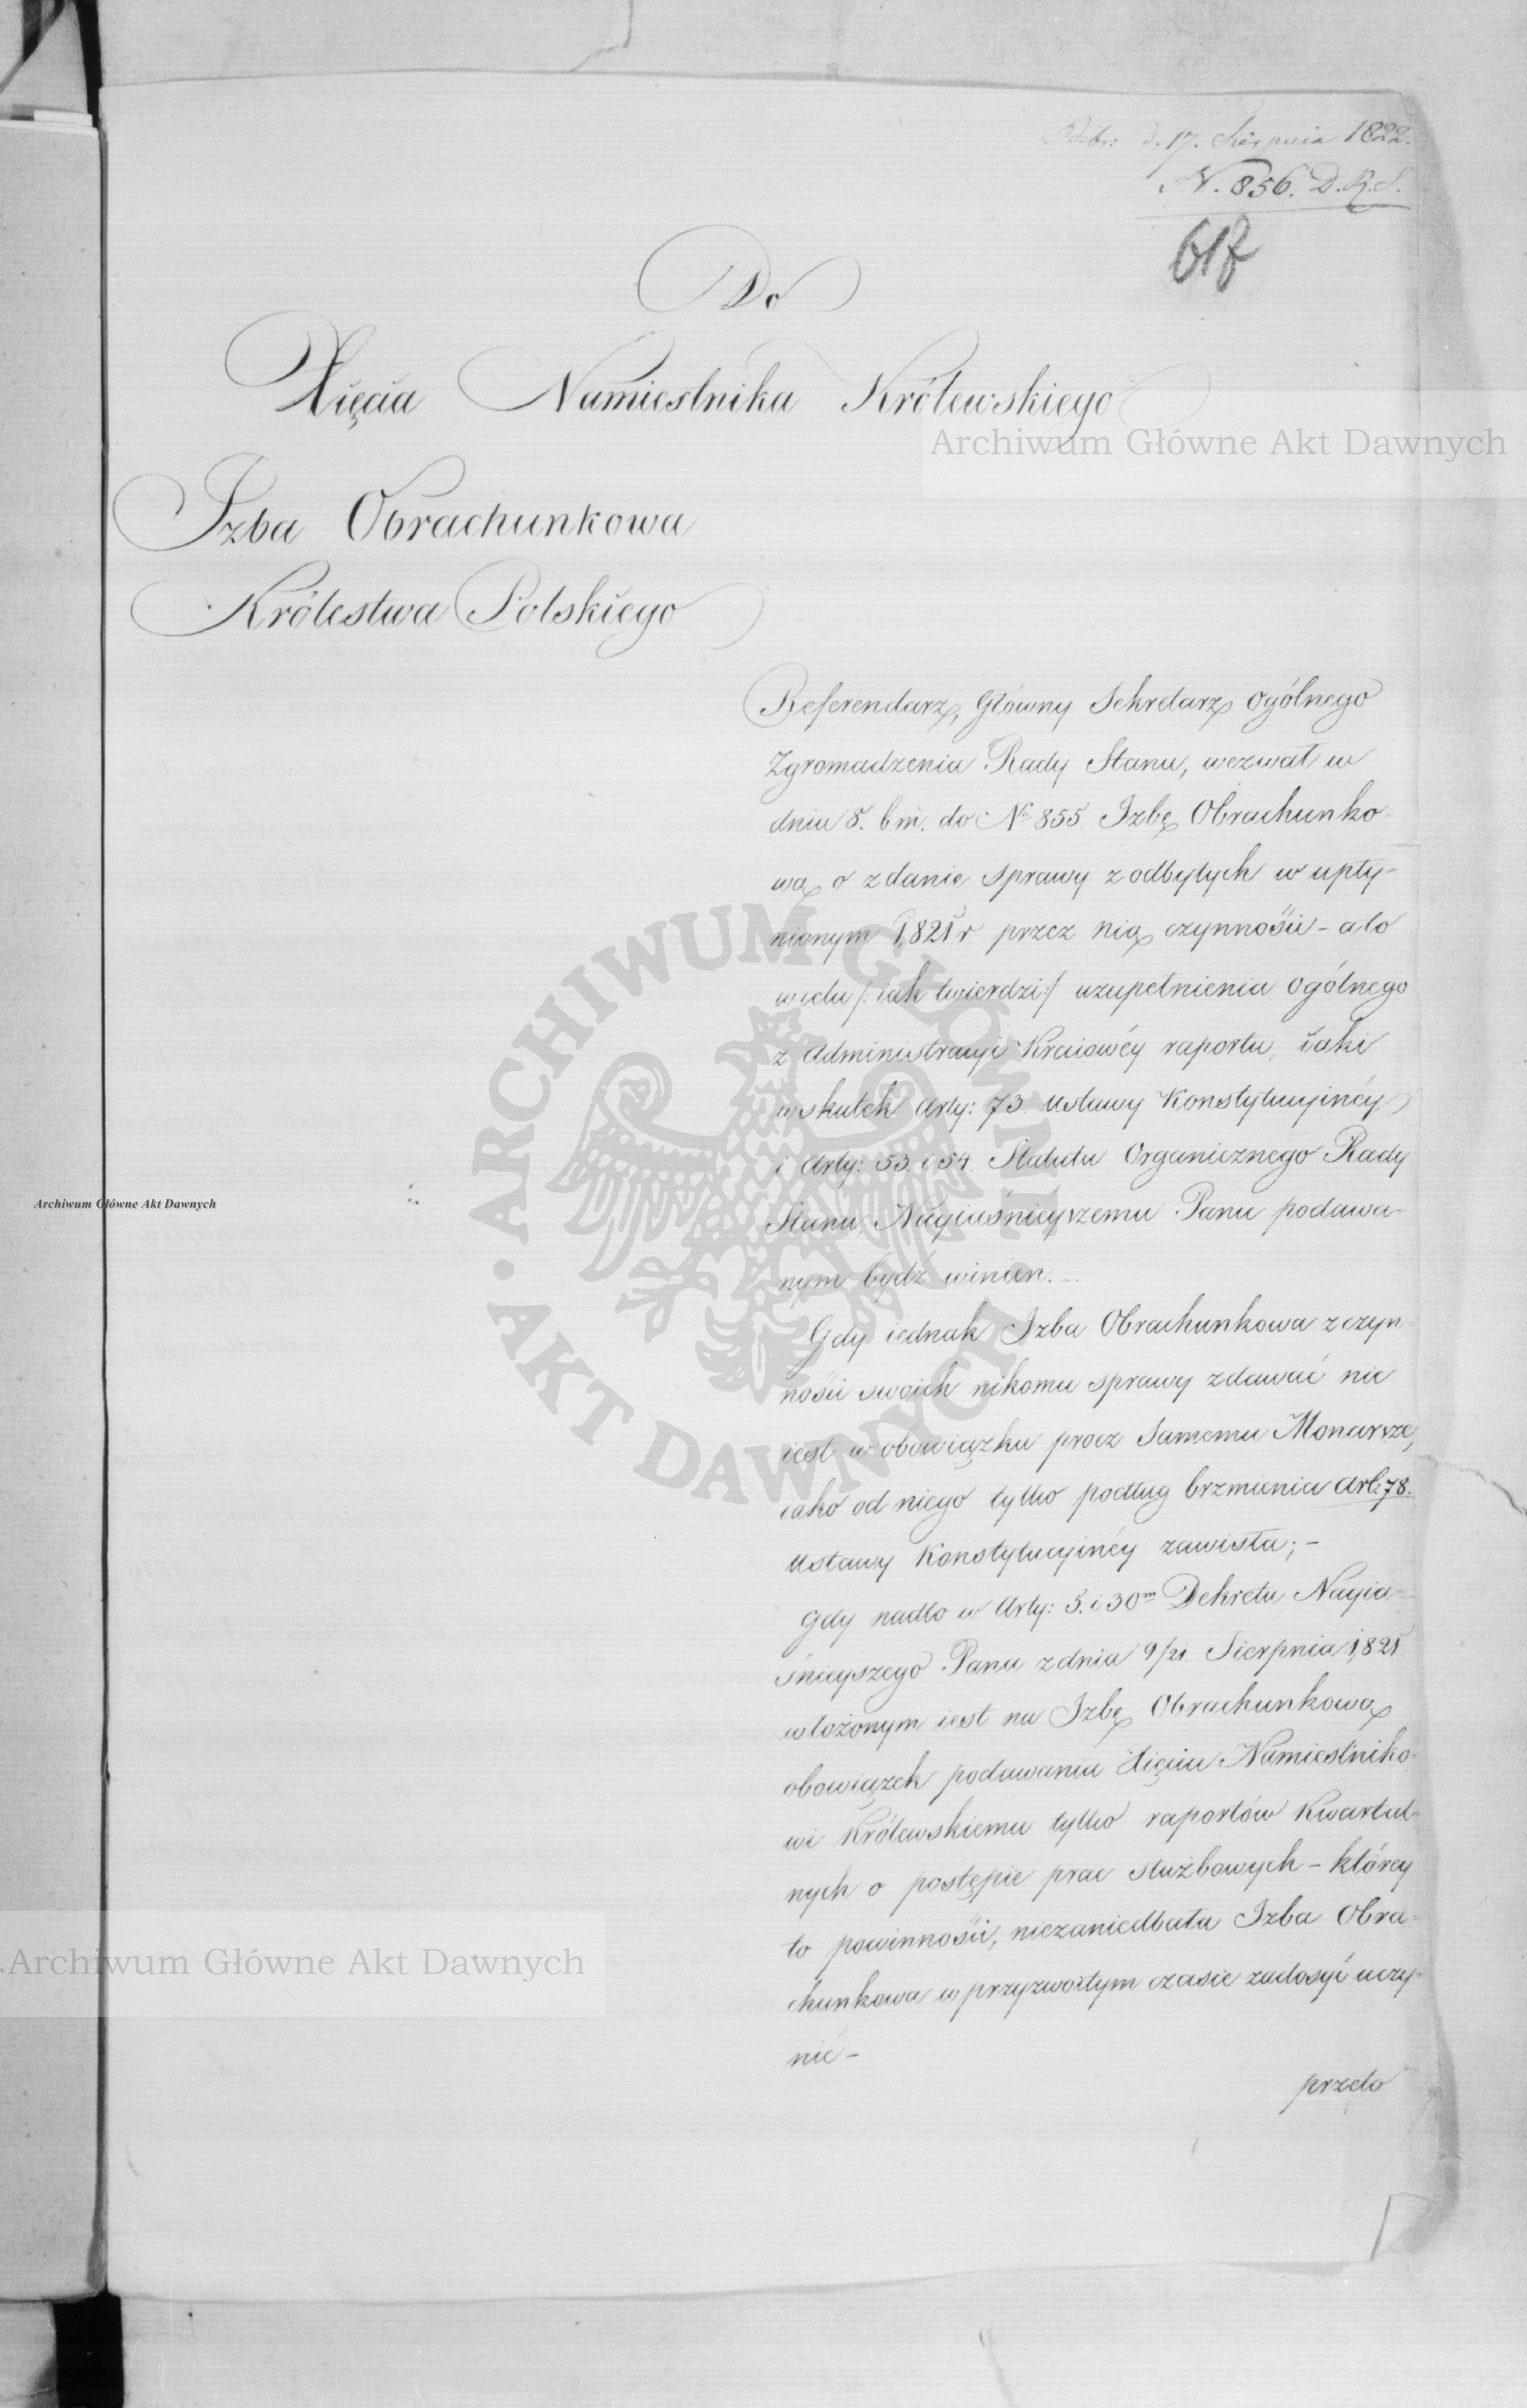 Odebr: d. 17. Sierpnia 1822.
N. 856. D.R.S.
617
Do
Xięcia Namiestnika Królewskiego
Archiwum Główne Akt Dawnych
Izba Obrachunkowa
Królestwa Polskiego
Referendarz, Główny Sekretarz Ogólnego
Zgromadzenia Rady Stanu, wezwał w
dniu 8. bm. do No 855 Izbę Obrachunko-
wą o zdanie sprawy z odbytych w upły-
nionym 1821 r przez nią czynności - a to
w celu /: iak twierdzi :/ uzupełnienia ogólnego
z Administracyi Kraiowéy raportu, iaki
w skutek Arty: 73 Ustawy Konstytucyinéy
i Arty: 53. i 54. Statutu Organicznego Rady
Stanu, Nayiaśnieyszemu Panu podawa-
nym bydź winien. -
Gdy iednak Izba Obrachunkowa z czyn-
ności swoich nikomu sprawy zdawać nie
iest w obowiązku procz Samemu Monarsze,
iako od niego tylko podług brzmienia Art: 78.
Ustawy Konstytucyinéy zawisła; -
gdy nadto w Arty: 5. i 30m Dekretu Nayia-
śnieyszego Pana z dnia 9/21. Sierpnia 1821
włożonym iest na Izbę Obrachunkową
obowiązek podawania Xięciu Namiestniko-
wi Królewskiemu tylko raportów Kwartal-
nych o postępie prac służbowych - którey
to powinności, niezaniedbała Izba Obra-
chunkowa w przyzwoitym czasie zadosyć uczy-
nić -
przeto
Archiwum Główne Akt Dawnych
Archiwum Główne Akt Dawnych
ARCHIWUM GŁÓWNE • AKT DAWNYCH •